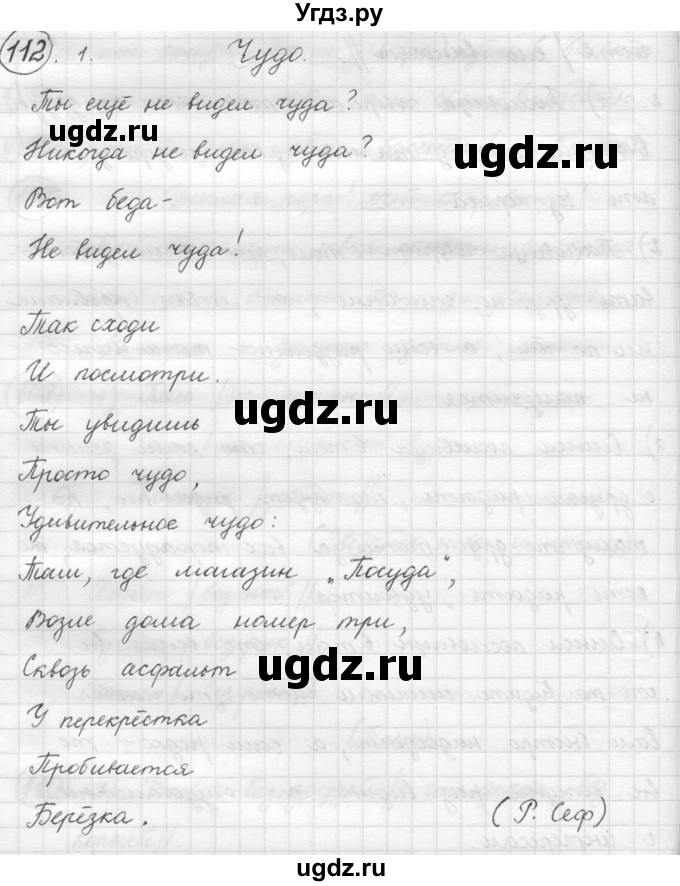 Угдз.ру
112. 1. Чудо.
Ты ещё не видел чуда?
ugdz.ru
Никогда не видел чуда?
ugdz.ru
Вот беда-
Не видел чуда!
Так сходи
И посмотри.
Ты увидишь
ugdz.ru
Просто чудо,
Удивительное чудо:
Там, где магазин „Посуда“,
Возле дома номер три,
Сквозь асфальт
ugdz.ru
У перекрёстка
Пробивается
Берёзка. (Р. Сеф)
ugdz.ru